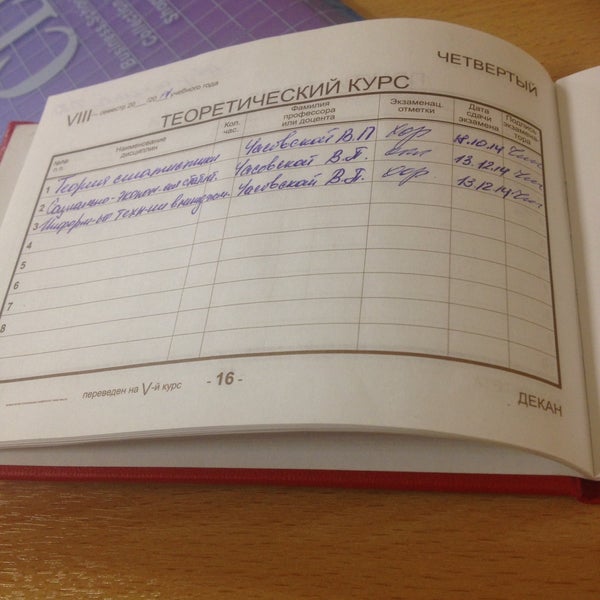 Business Scho
Collection
ЧЕТВЕРТЫЙ
VIII – семестр 20 /20 14 учебного года
ТЕОРЕТИЧЕСКИЙ КУРС
№№ п.п. Наименование дисциплин Кол. час. Фамилия профессора или доцента Экзаменац. отметки Дата сдачи экзамена Подпись экзаменатора
1 Теория статистики Часовской В.П. Хор 18.10.14
2 Социально-эконом-ая стат. Часовской В.П. 13.12.14
3 Информ-ые техн-ии в Часовской В.П. Хор 13.12.14
4
5
6
7
8
переведен на V-й курс
- 16 -
ДЕКАН